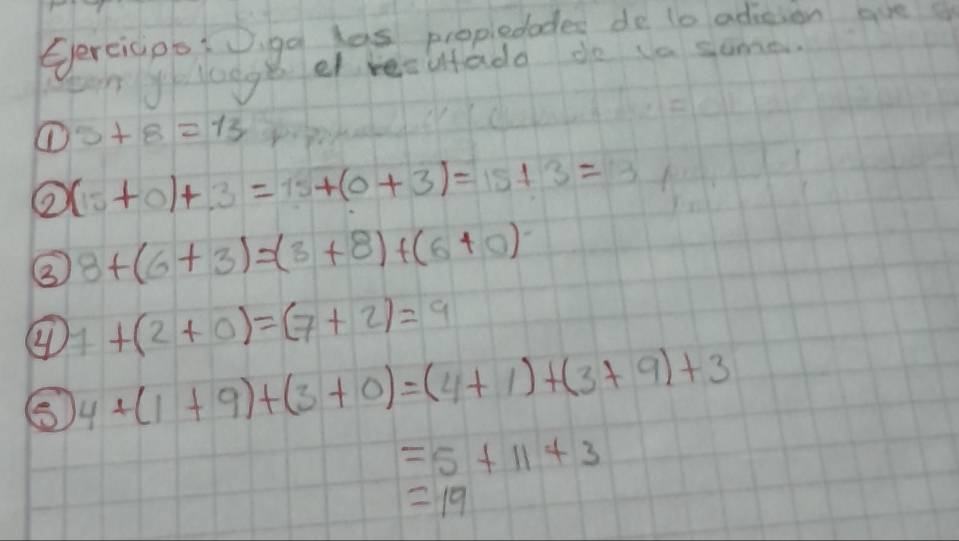 Ejercicios: Diga las propiedades de la adición que
y luego el resultado de la suma.
① 5 + 8 = 13
② (15 + 0) + 3 = 15 + (0 + 3) = 15 + 3 =
③ 8 + (6 + 3) = (3 + 8) + (6 + 0)
④ 7 + (2 + 0) = (7 + 2) = 9
⑤ 4 + (1 + 9) + (3 + 0) = (4 + 1) + (3 + 9) + 3
= 5 + 11 + 3
= 19